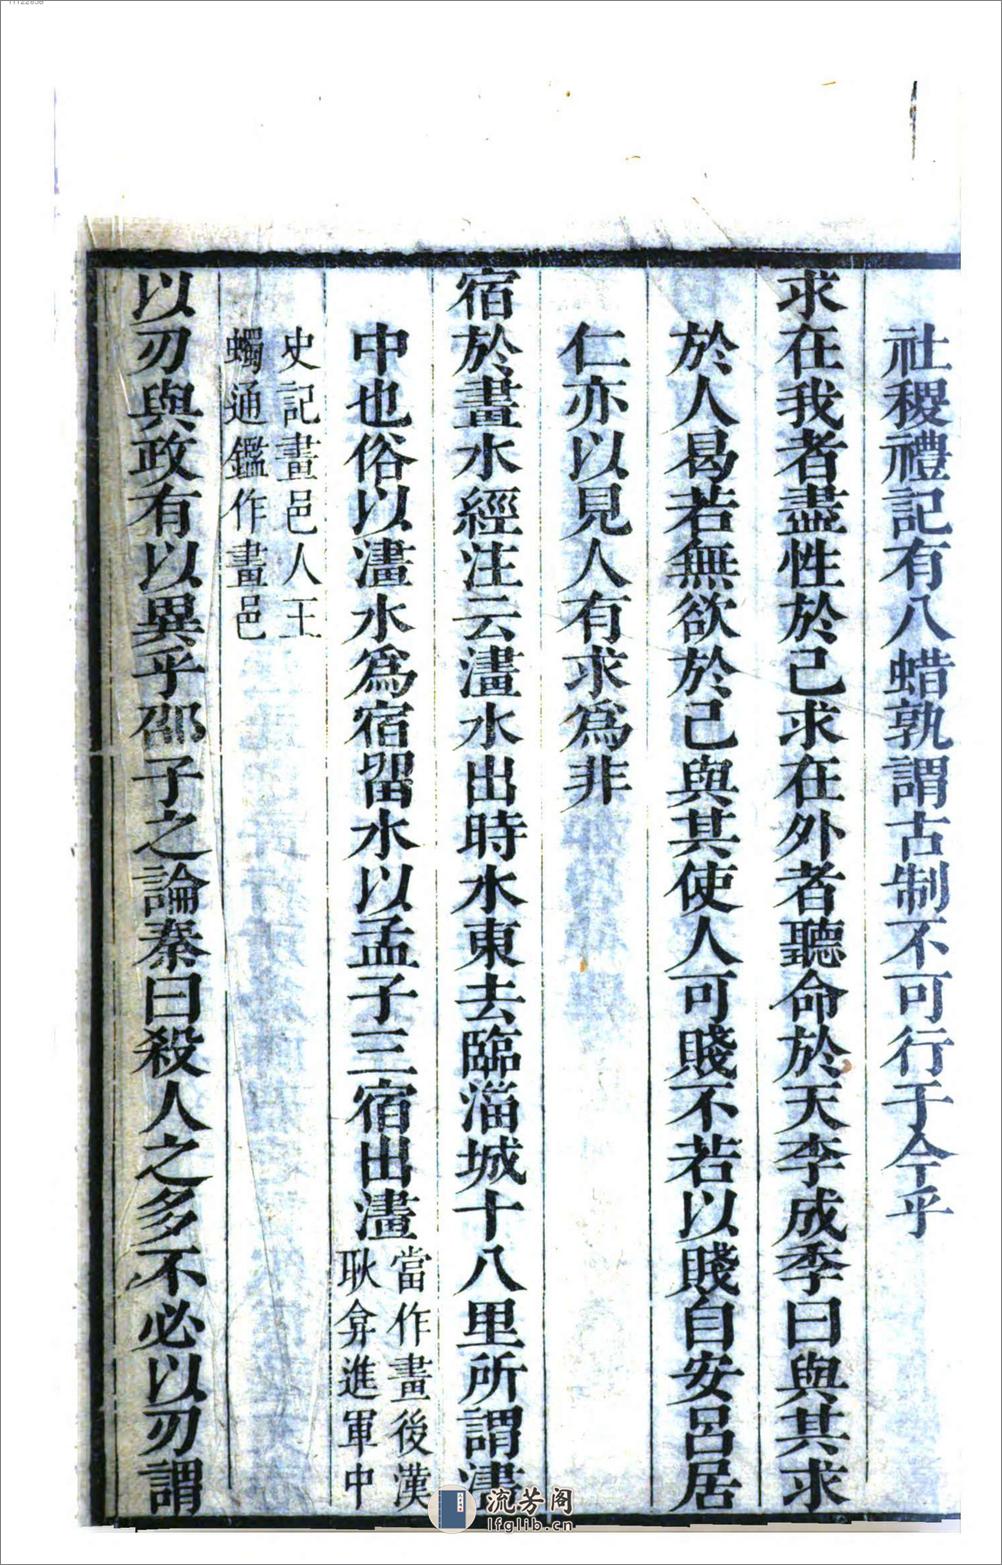 11122858
社稷禮記有八蜡孰謂古制不可行于今乎
求在我者盡性於己求在外者聽命於天李成季曰與其求
於人曷若無欲於己與其使人可賤不若以賤自安呂居
仁亦以見人有求為非
宿於畫水經注云澅水出時水東去臨淄城十八里所謂澅
中也俗以澅水為宿留水以孟子三宿出澅當作畫後漢
耿弇進軍中
史記畫邑人王
蠋通鑑作畫邑
以刃與政有以異乎邵子之論秦曰殺人之多不必以刃謂
流芳阁
lfglib.cn